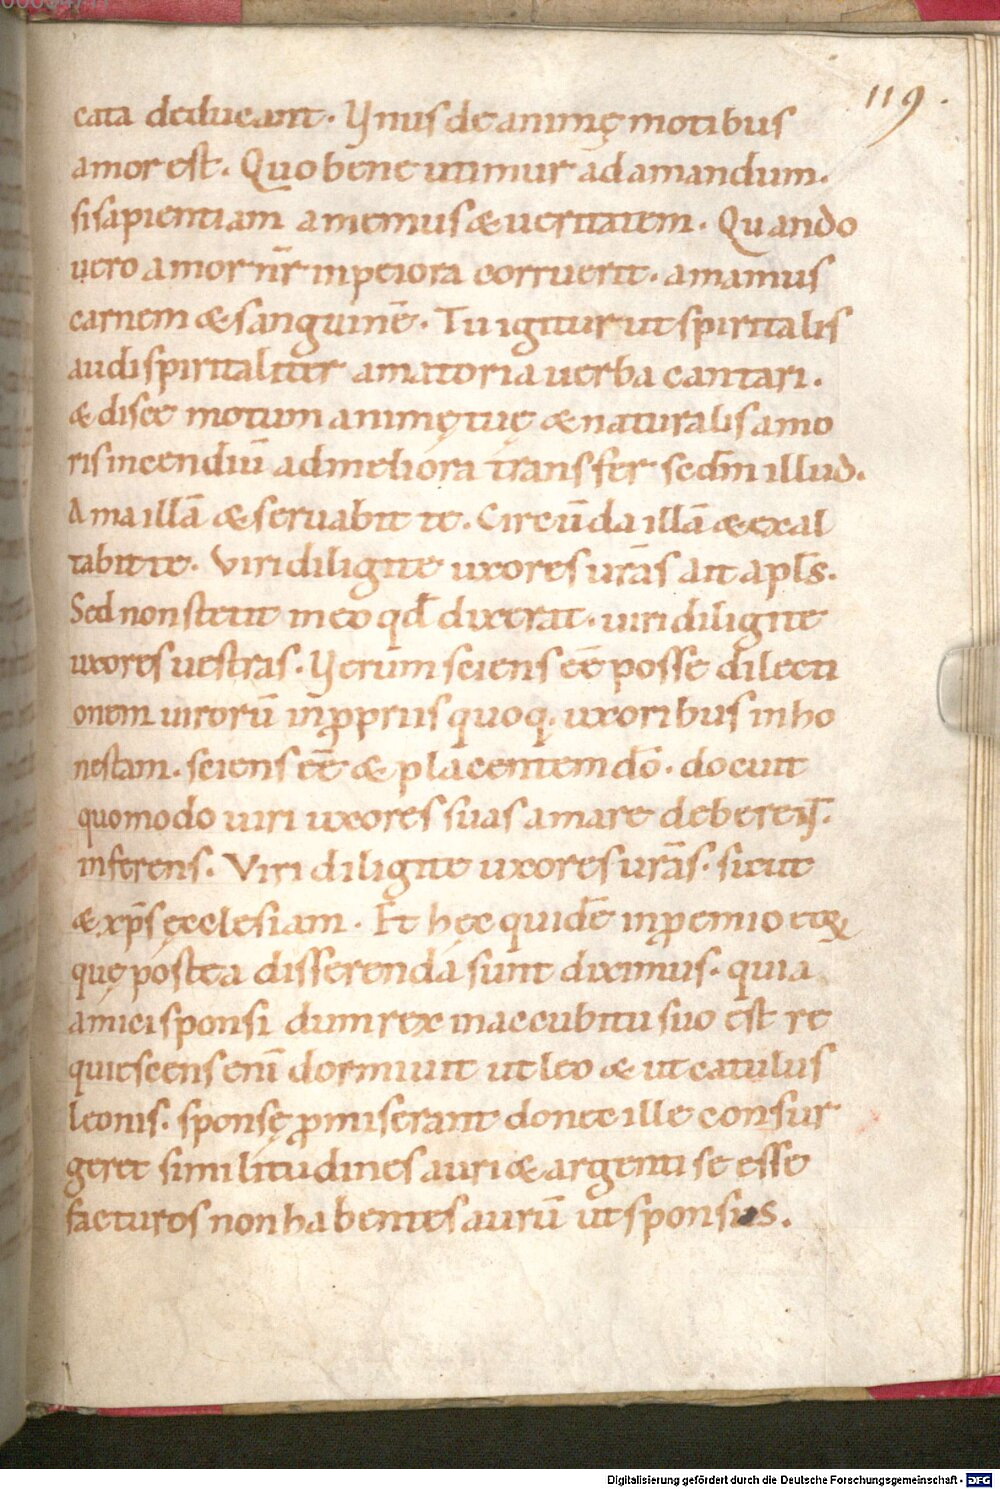 119.
cata deducant. Unus de animę motibus
amor est. Quo bene utimur ad amandum.
si sapientiam amemus & ueritatem. Quando
uero amor nr̄ in peiora corruerit. amamus
carnem & sanguinē. Tu igitur ut spiritalis
audi spiritaliter amatoria uerba cantari.
& disce motum animę tuę & naturalis amo
ris incendiū ad meliora transfer scdm̄ illud.
Ama illā & seruabit te. Circūda illā & exal
tabit te. Viri diligite uxores urās ait apls̄.
Sed non stetit in eo qd̄ dixerat. uiri diligite
uxores uestras. Uerum sciens eē posse dilecti
onem uirorū in ꝓpriis quoq. uxoribus inho
nestam. sciens eē & placentem dō. docuit
quomodo uiri uxores suas amare debereīt.
inferens. Viri diligite uxores urās. sicut
& xp̄s ęcclesiam. Et hęc quidē in ꝓemio eoꝝ
quę postea disserenda sunt diximus. quia
amici sponsi dum rex in accubitu suo est re
quiescens enī dormiuit ut leo & ut catulus
leonis. sponsę ꝓmiserant donec ille consur
geret similitudines auri & argenti se esse
facturos non habentes aurū ut sponsus.
Digitalisierung gefördert durch die Deutsche Forschungsgemeinschaft - DFG